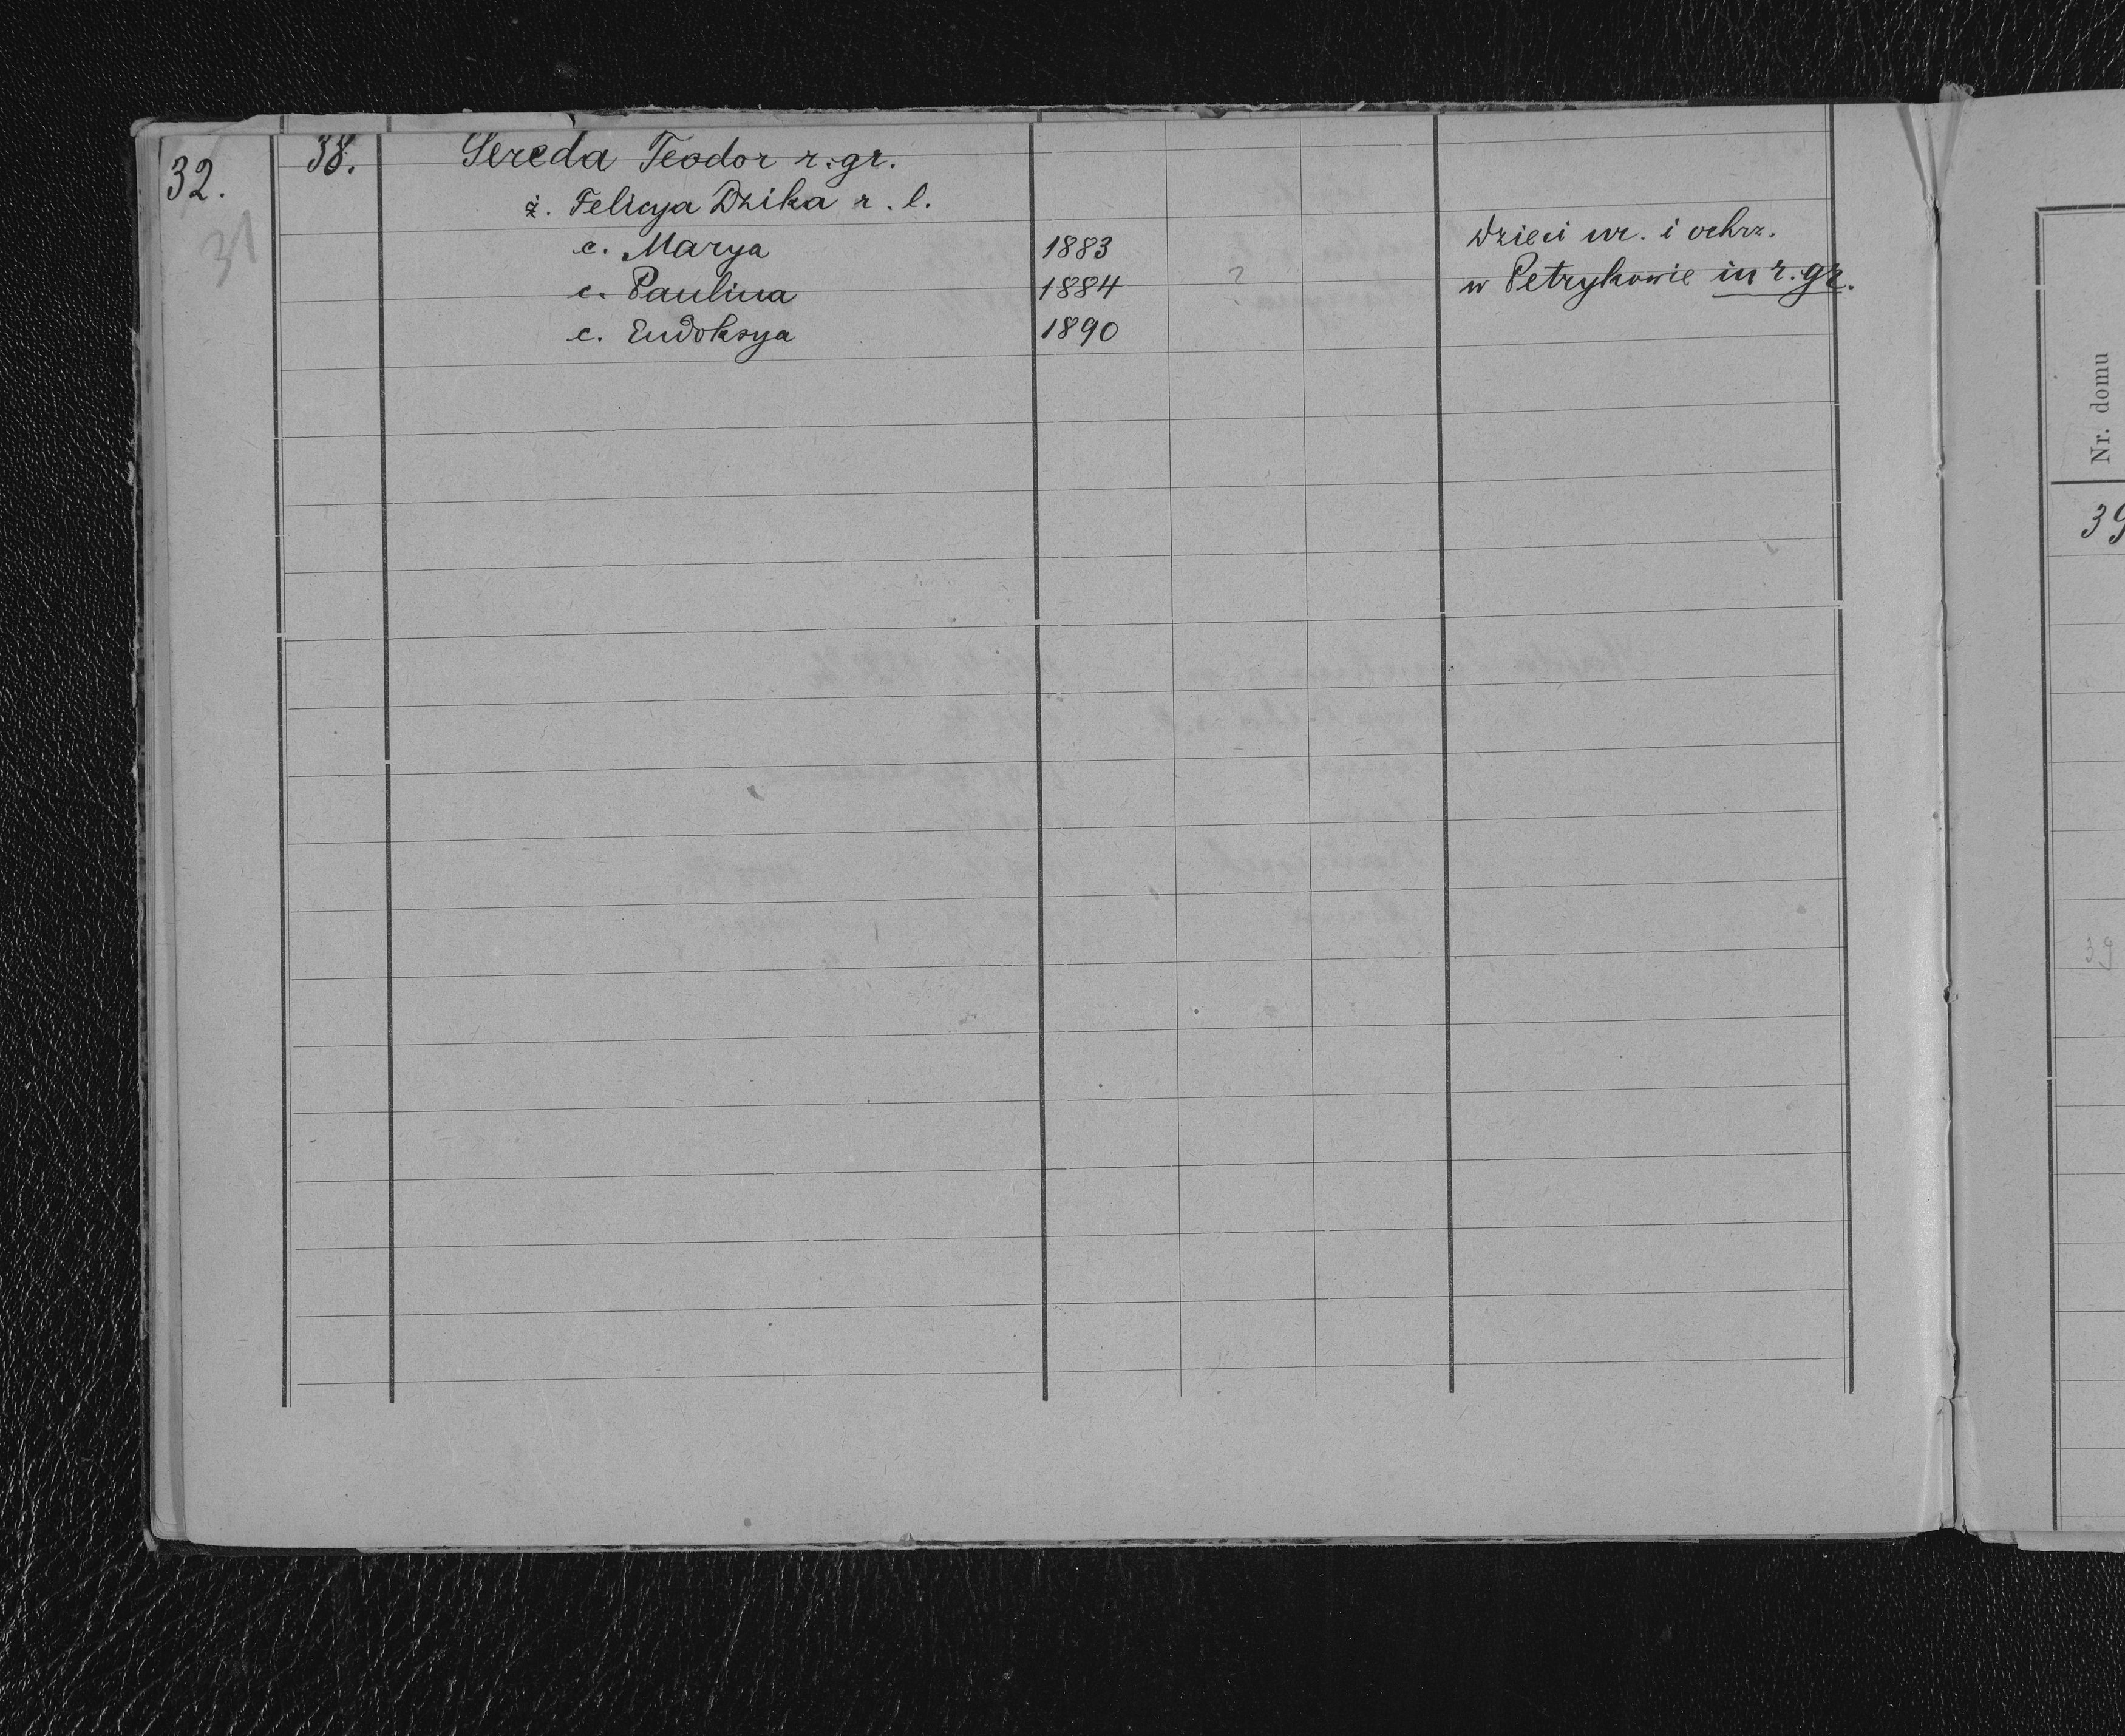 32.
31
38.
Sereda Teodor r. gr.
ż. Felicya Dzika r. l.
c. Marya 1883
dzieci ur. i ochrz.
c. Paulina 1884 ?
w Petrykowie in r. gr.
c. Eudoksya 1890
Nr. domu
39
39